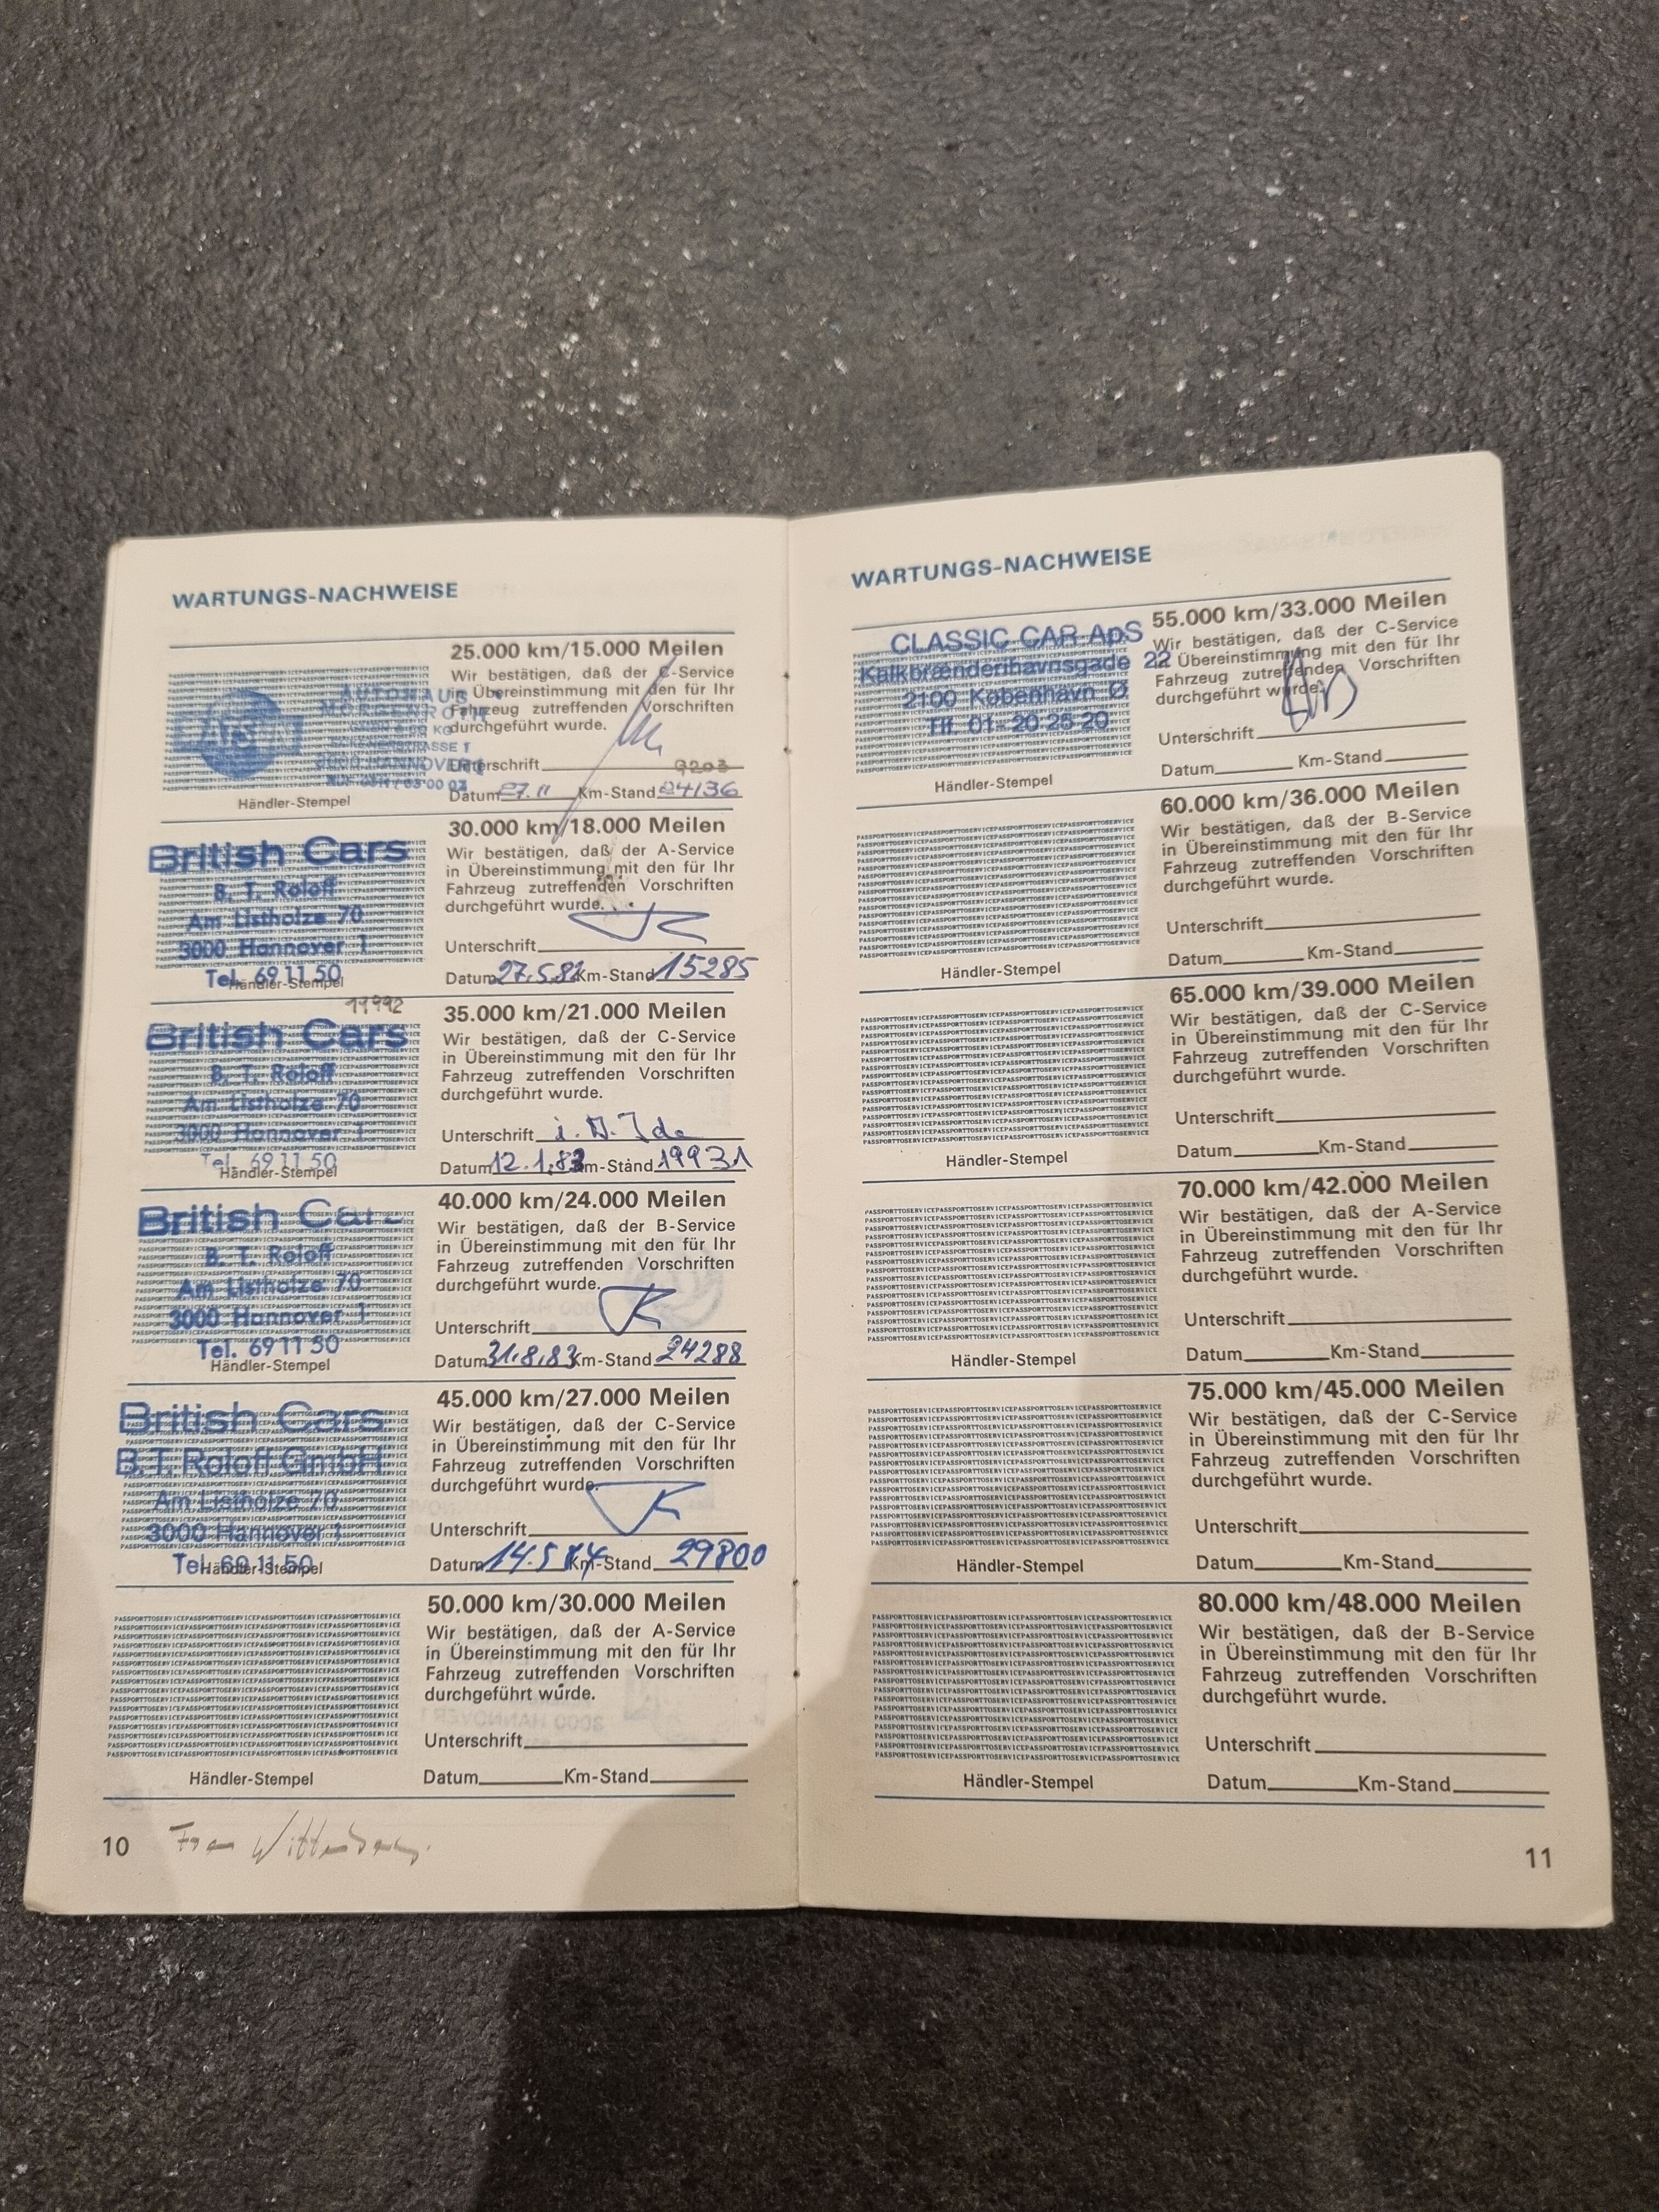 WARTUNGS-NACHWEISE
25.000 km/15.000 Meilen
Wir bestätigen, daß der C-Service
in Übereinstimmung mit den für Ihr
Fahrzeug zutreffenden Vorschriften
durchgeführt wurde.
AUTOHAUS
MORGENROTH
HANNOVER
Unterschrift
9203
Datum 27.11 Km-Stand 24136
Händler-Stempel
30.000 km/18.000 Meilen
Wir bestätigen, daß der A-Service
in Übereinstimmung mit den für Ihr
Fahrzeug zutreffenden Vorschriften
durchgeführt wurde.
British Cars
B. T. Roloff
Am Listholze 70
3000 Hannover 1
Tel. 69 11 50
Unterschrift
Datum 27.5.82 Km-Stand 15285
Händler-Stempel
19992
35.000 km/21.000 Meilen
Wir bestätigen, daß der C-Service
in Übereinstimmung mit den für Ihr
Fahrzeug zutreffenden Vorschriften
durchgeführt wurde.
British Cars
B. T. Roloff
Am Listholze 70
3000 Hannover 1
Tel. 69 11 50
Unterschrift
Datum 12.1.83 Km-Stand 19931
Händler-Stempel
40.000 km/24.000 Meilen
Wir bestätigen, daß der B-Service
in Übereinstimmung mit den für Ihr
Fahrzeug zutreffenden Vorschriften
durchgeführt wurde.
British Cars
B. T. Roloff
Am Listholze 70
3000 Hannover 1
Tel. 69 11 50
Unterschrift
Datum 31.8.83 Km-Stand 24288
Händler-Stempel
45.000 km/27.000 Meilen
Wir bestätigen, daß der C-Service
in Übereinstimmung mit den für Ihr
Fahrzeug zutreffenden Vorschriften
durchgeführt wurde.
British Cars
B.T. Roloff GmbH
Am Listholze 70
3000 Hannover 1
Tel. 69 11 50
Unterschrift
Datum 14.5.84 Km-Stand 29800
Händler-Stempel
50.000 km/30.000 Meilen
Wir bestätigen, daß der A-Service
in Übereinstimmung mit den für Ihr
Fahrzeug zutreffenden Vorschriften
durchgeführt wurde.
Unterschrift
Datum Km-Stand
Händler-Stempel
10
WARTUNGS-NACHWEISE
55.000 km/33.000 Meilen
Wir bestätigen, daß der C-Service
in Übereinstimmung mit den für Ihr
Fahrzeug zutreffenden Vorschriften
durchgeführt wurde.
CLASSIC CAR ApS
Kalkbrænderihavnsgade 22
2100 København Ø
Tlf. 01 - 20 25 20
Unterschrift
Datum Km-Stand
Händler-Stempel
60.000 km/36.000 Meilen
Wir bestätigen, daß der B-Service
in Übereinstimmung mit den für Ihr
Fahrzeug zutreffenden Vorschriften
durchgeführt wurde.
Unterschrift
Datum Km-Stand
Händler-Stempel
65.000 km/39.000 Meilen
Wir bestätigen, daß der C-Service
in Übereinstimmung mit den für Ihr
Fahrzeug zutreffenden Vorschriften
durchgeführt wurde.
Unterschrift
Datum Km-Stand
Händler-Stempel
70.000 km/42.000 Meilen
Wir bestätigen, daß der A-Service
in Übereinstimmung mit den für Ihr
Fahrzeug zutreffenden Vorschriften
durchgeführt wurde.
Unterschrift
Datum Km-Stand
Händler-Stempel
75.000 km/45.000 Meilen
Wir bestätigen, daß der C-Service
in Übereinstimmung mit den für Ihr
Fahrzeug zutreffenden Vorschriften
durchgeführt wurde.
Unterschrift
Datum Km-Stand
Händler-Stempel
80.000 km/48.000 Meilen
Wir bestätigen, daß der B-Service
in Übereinstimmung mit den für Ihr
Fahrzeug zutreffenden Vorschriften
durchgeführt wurde.
Unterschrift
Datum Km-Stand
Händler-Stempel
11